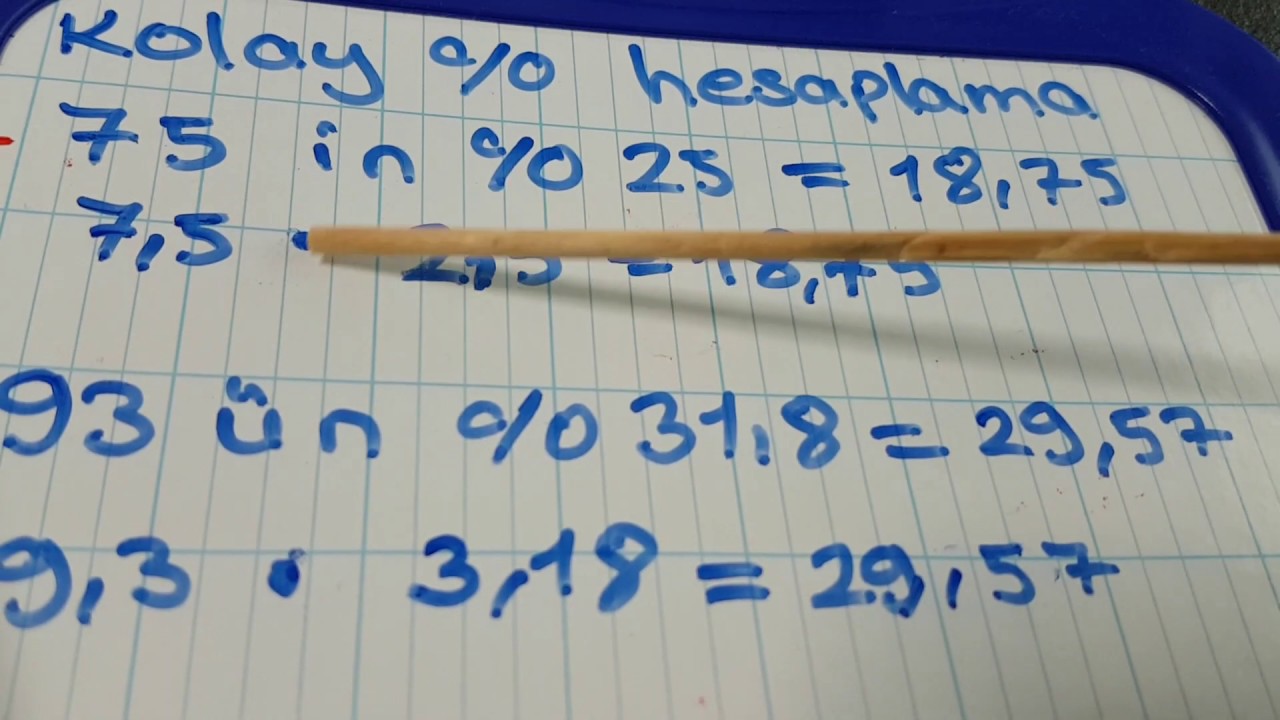 Kolay % hesaplama
75 in % 25 = 18,75
7,5 • 2,5 = 18,75
93 ün % 31,8 = 29,57
9,3 • 3,18 = 29,57